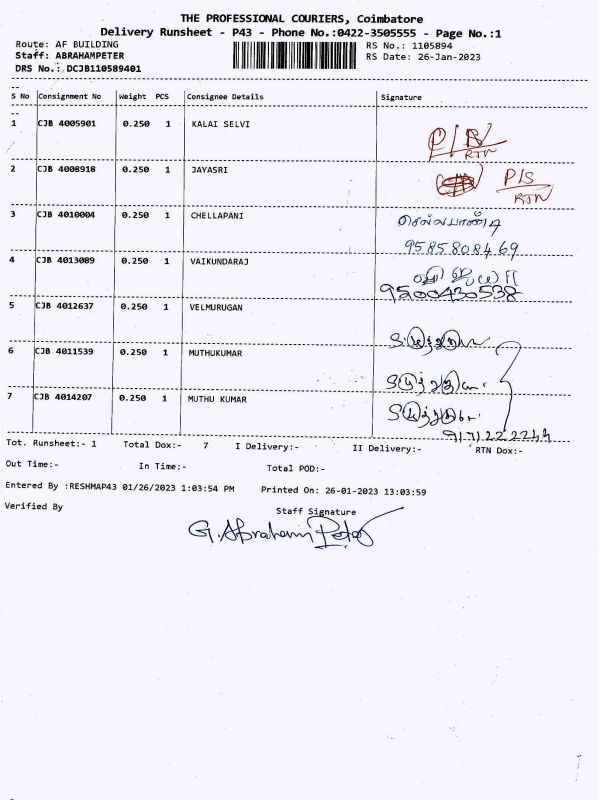 THE PROFESSIONAL COURIERS, Coimbatore
Delivery Runsheet - P43 - Phone No.:0422-3505555 - Page No.:1
Route: AF BUILDING RS No.: 1105894
Staff: ABRAHAMPETER RS Date: 26-Jan-2023
DRS No.: DCJB110589401
S No Consignment No Weight PCS Consignee Details Signature
1 CJB 4005901 0.250 1 KALAI SELVI
RTN
2 CJB 4008918 0.250 1 JAYASRI P/S
RTN
3 CJB 4010004 0.250 1 CHELLAPANI செல்லபாண்டி
9585808469
4 CJB 4013089 0.250 1 VAIKUNDARAJ
9500430538
5 CJB 4012637 0.250 1 VELMURUGAN
6 CJB 4011539 0.250 1 MUTHUKUMAR
7 CJB 4014207 0.250 1 MUTHU KUMAR
Tot. Runsheet:- 1 Total Dox:- 7 I Delivery:- II Delivery:- RTN Dox:-
Out Time:- In Time:- Total POD:-
Entered By :RESHMAP43 01/26/2023 1:03:54 PM Printed On: 26-01-2023 13:03:59
Verified By Staff Signature
G. Abraham Peter